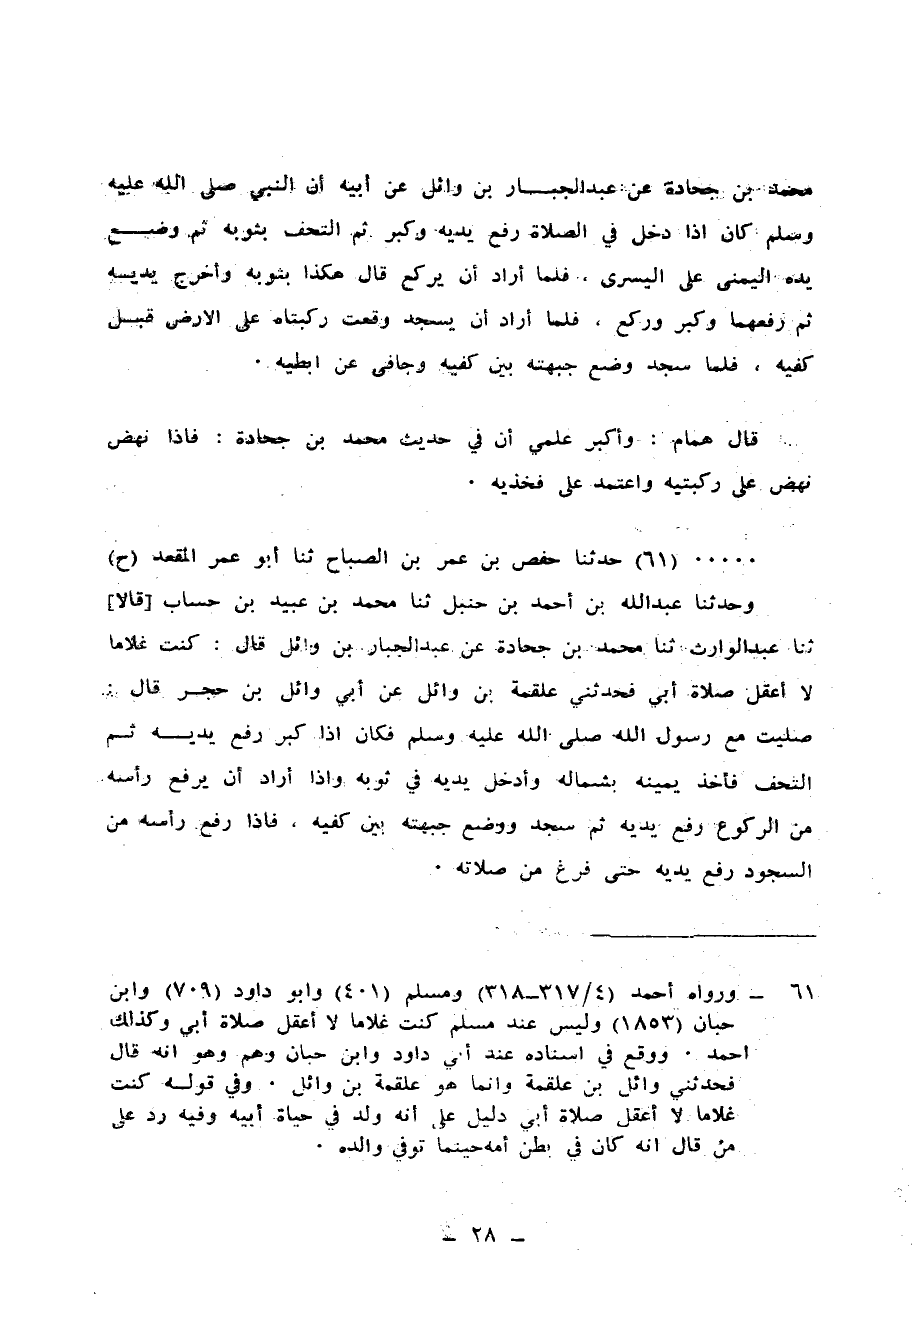 محمد بن جحادة عن عبدالجبـــار بن وائل عن أبيه أن النبي صلى الله عليه
وسلم كان اذا دخل في الصلاة رفع يديه وكبر ثم التحف بثوبه ثم وضـــع
يده اليمنى على اليسرى ، فلما أراد أن يركع قال هكذا بثوبه وأخرج يديـه
ثم رفعهما وكبر وركع ، فلما أراد أن يسجد وقعت ركبتاه على الارض قبـل
كفيه ، فلما سجد وضع جبهته بين كفيه وجافى عن ابطيه ٠
قال همام : وأكبر علمي أن في حديث محمد بن جحادة : فاذا نهض
نهض على ركبتيه واعتمد على فخذيه ٠
٠٠٠٠٠ (٦١) حدثنا حفص بن عمر بن الصباح ثنا أبو عمر المقعد (ح)
وحدثنا عبدالله بن أحمد بن حنبل ثنا محمد بن عبيد بن حساب [قالا]
ثنا عبدالوارث ثنا محمد بن جحادة عن عبدالجبار بن وائل قال : كنت غلاما
لا أعقل صلاة أبي فحدثني علقمة بن وائل عن أبي وائل بن حجـر قال :
صليت مع رسول الله صلى الله عليه وسلم فكان اذا كبر رفع يديـــه ثـم
التحف فأخذ يمينه بشماله وأدخل يديه في ثوبه واذا أراد أن يرفع رأسه
من الركوع رفع يديه ثم سجد ووضع جبهته بين كفيه ، فاذا رفع رأسه من
السجود رفع يديه حتى فرغ من صلاته ٠
٦١ ــ ورواه أحمد (٣١٧/٤ــ٣١٨) ومسلم (٤٠١) وابو داود (٧٠٩) وابن
حبان (١٨٥٣) وليس عند مسلم كنت غلاما لا أعقل صلاة أبي وكذلك
احمد ٠ ووقع في اسناده عند أبي داود وابن حبان وهم وهو انه قال
فحدثني وائل بن علقمة وانما هو علقمة بن وائل ٠ وفي قولـه كنت
غلاما لا أعقل صلاة أبي دليل على أنه ولد في حياة أبيه وفيه رد على
من قال انه كان في بطن أمه حينما توفي والده ٠
ــ ٢٨ ــ